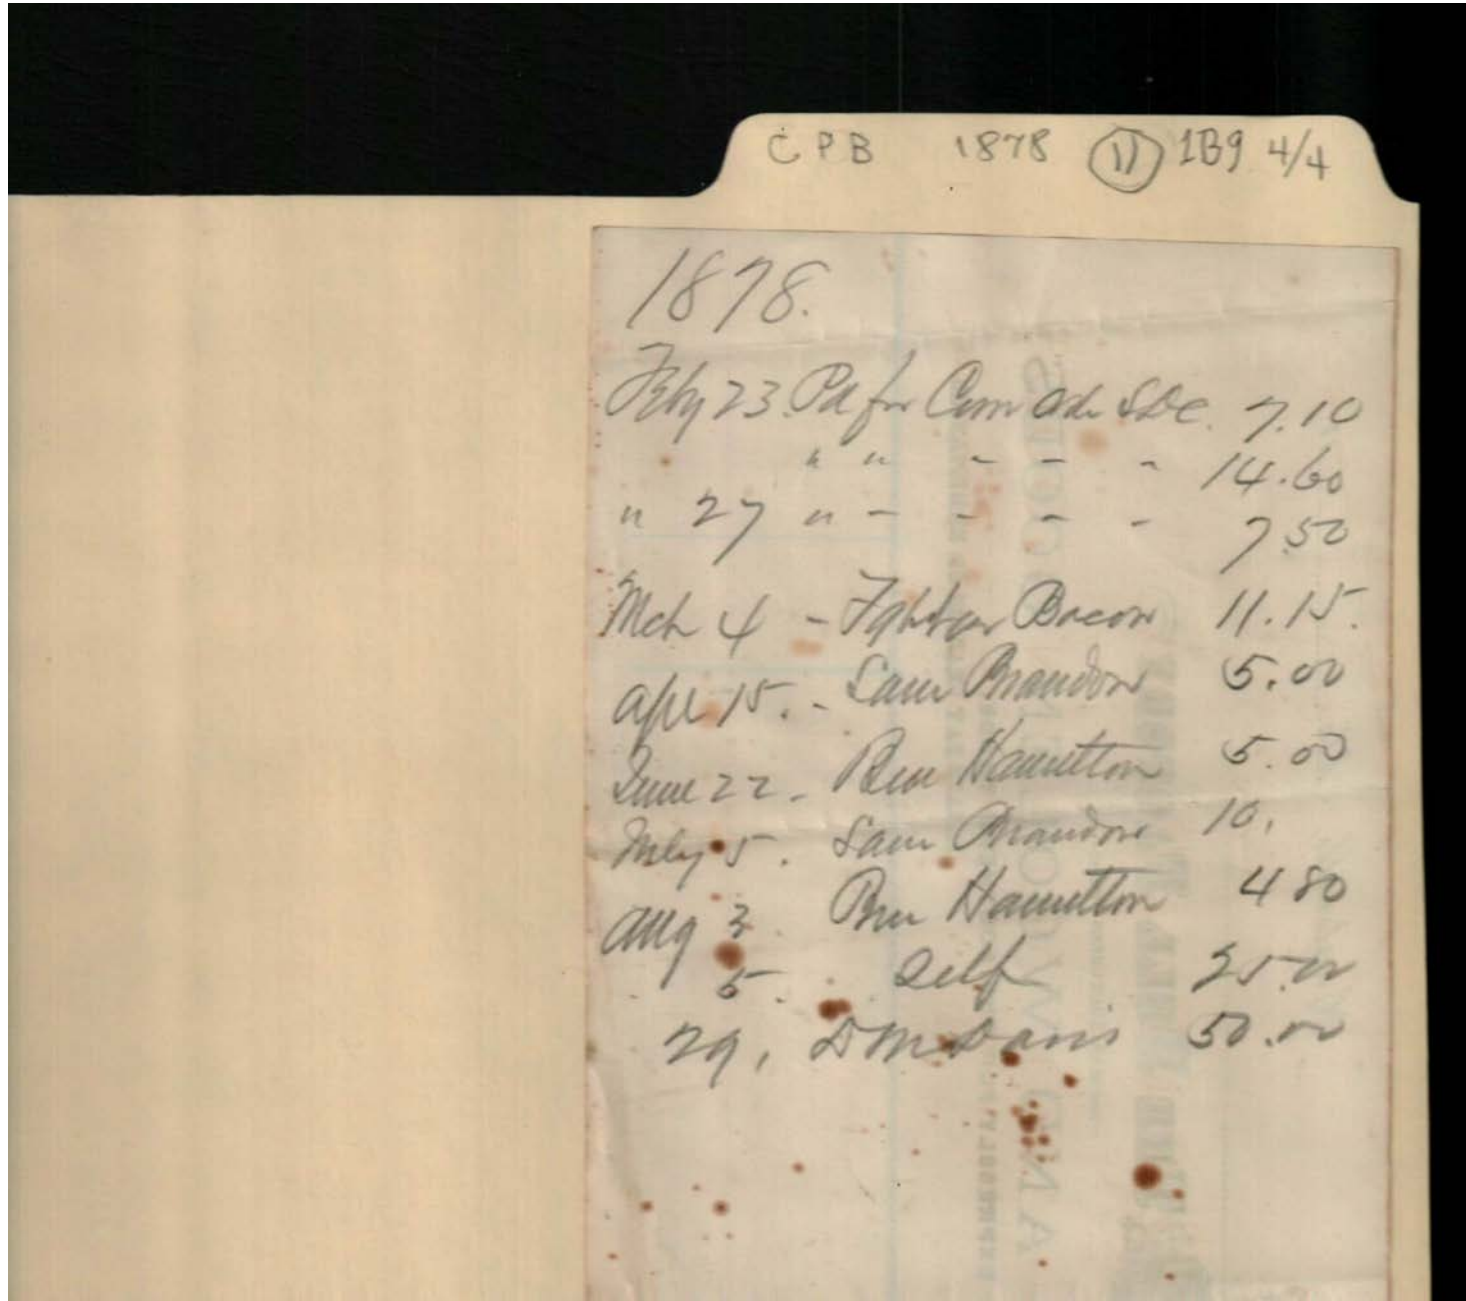 CPB 1878 (11) 1B9 4/4
1878.
Feby 23. Pd for Corn Ode SDC. 7.10
" " - - - 14.60
" 27 " - - - - 7.50
Mch 4 - Fght on Bacon 11.15.
Apl 15. - Sam Brandon 5.00
June 22 - Ben Hamilton 5.00
July 5. Sam Brandon 10.
Aug 3 Ben Hamilton 4 80
5. Self 25.00
29, D M Davis 50.00